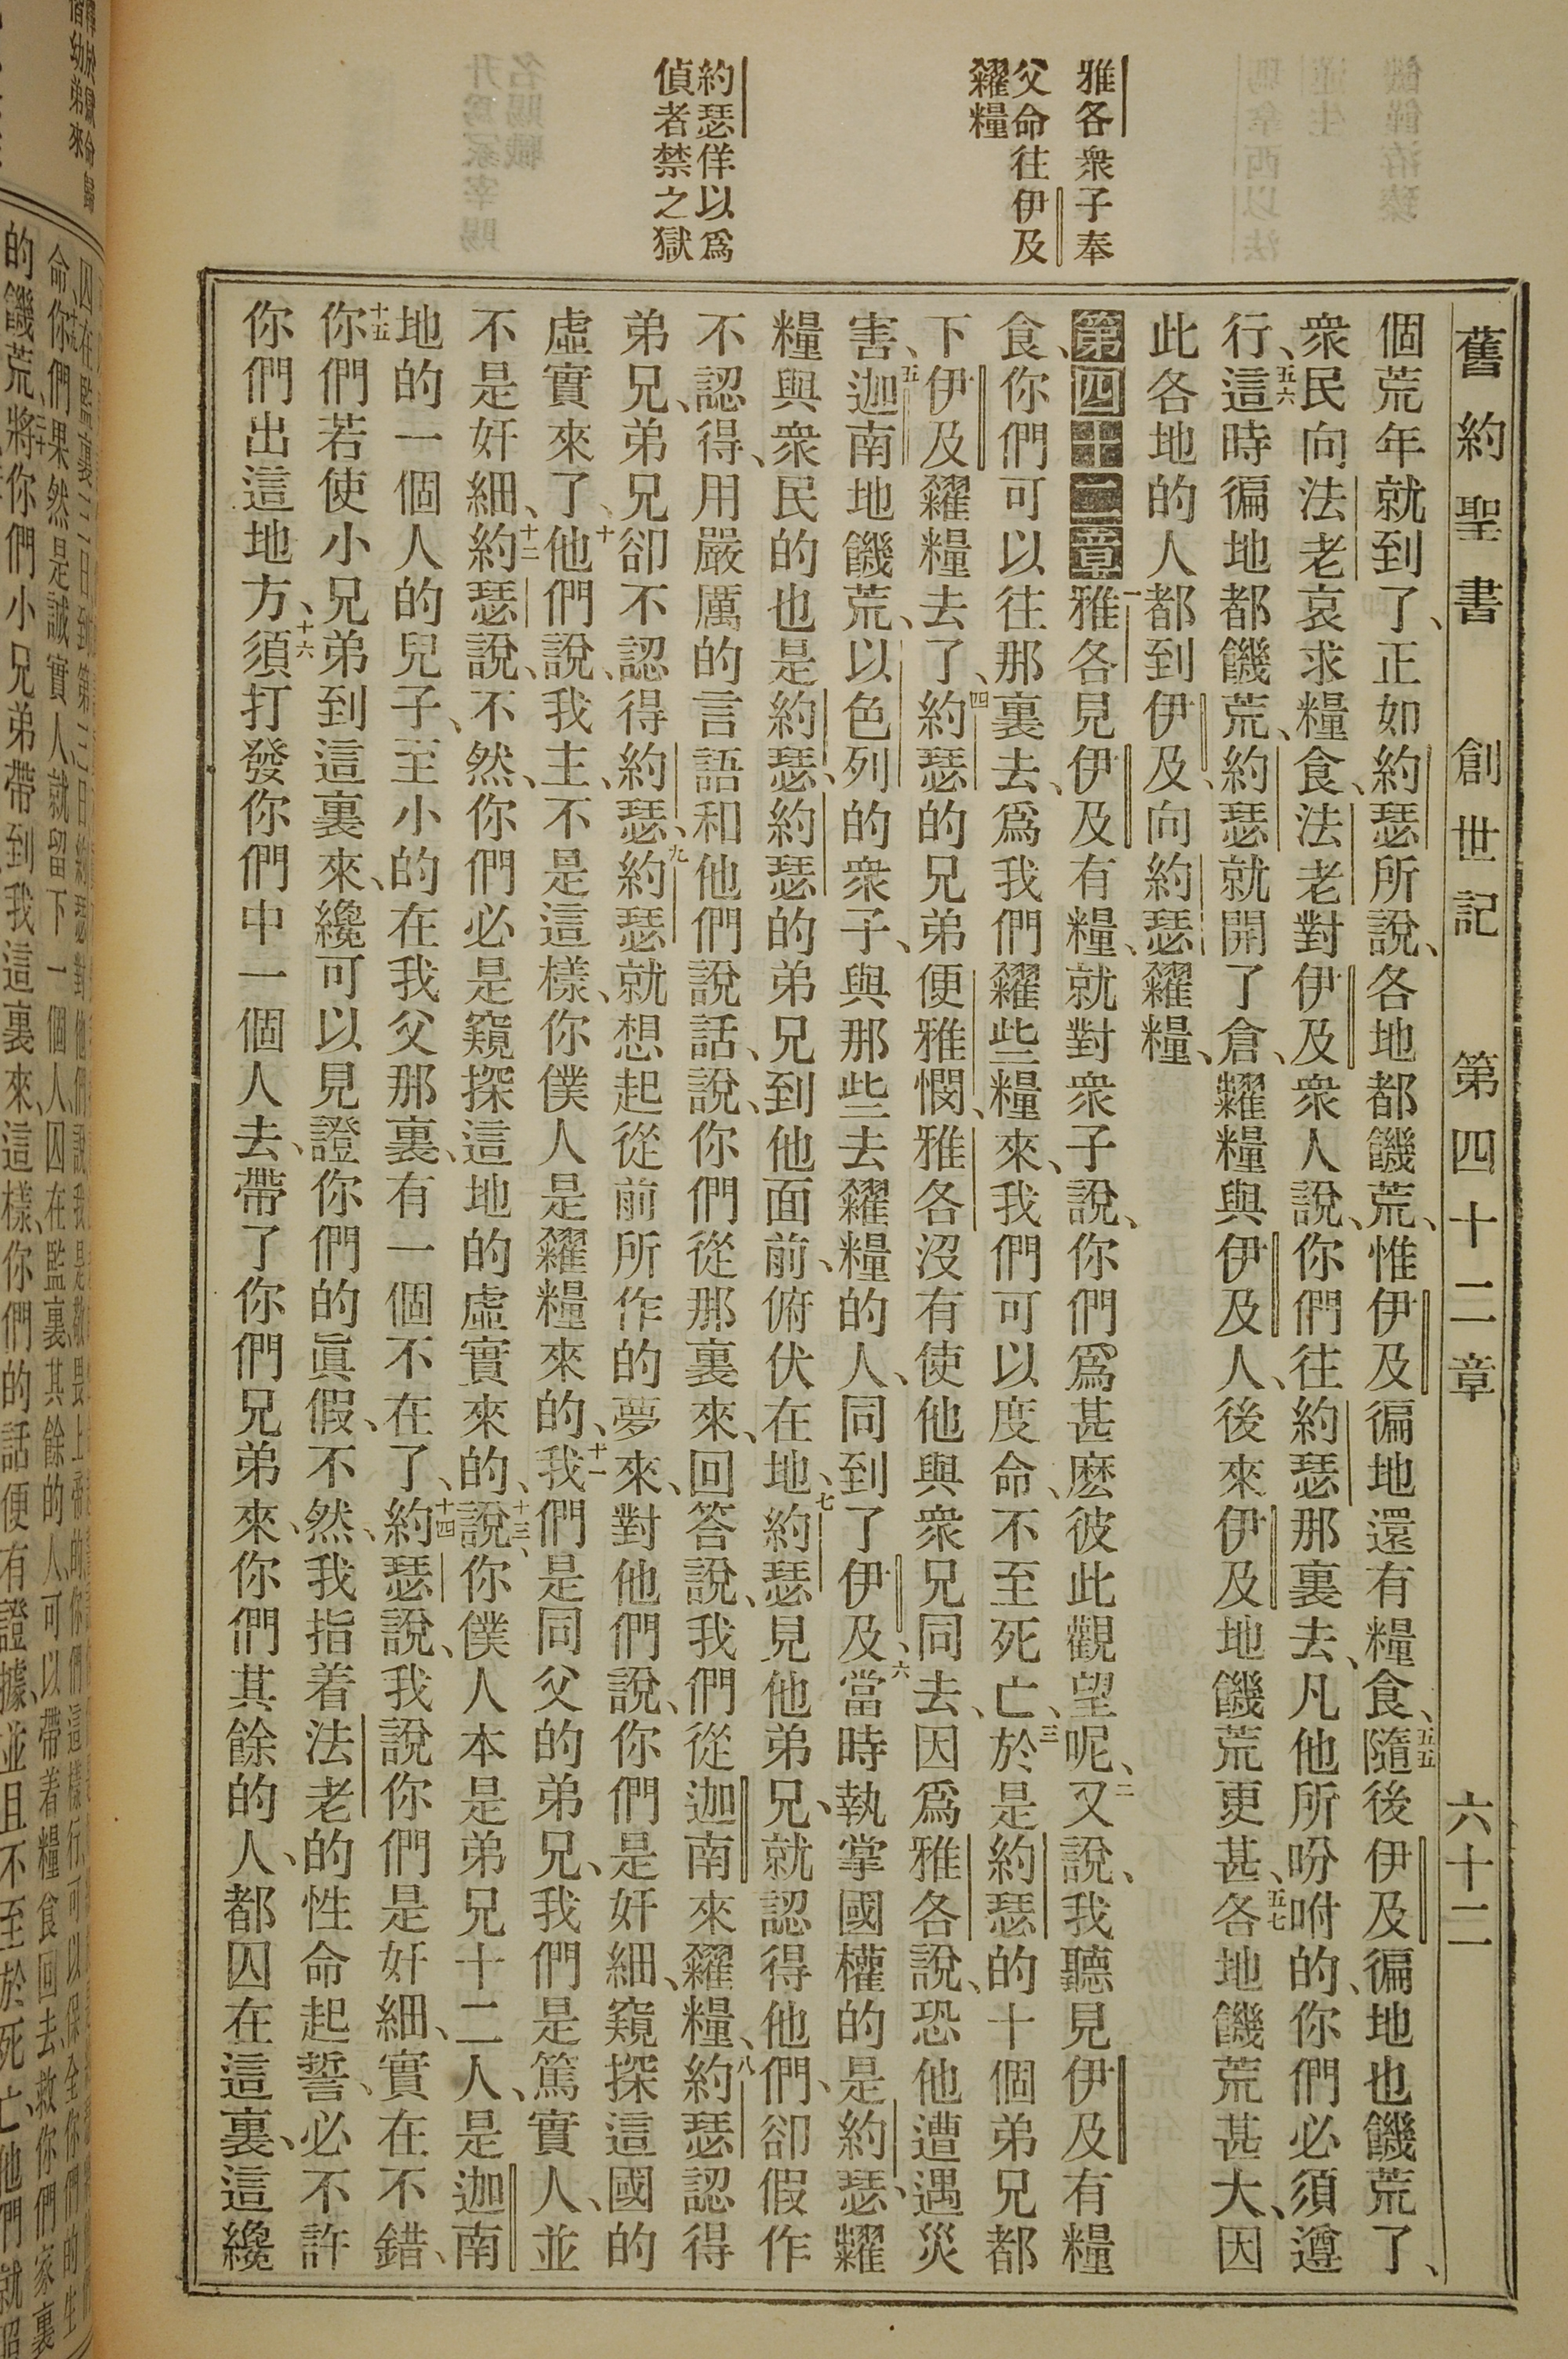 舊約聖書 創世記 第四十二章 六十二
雅各衆子奉
父命往伊及
糴糧
約瑟佯以爲
偵者禁之獄
個荒年就到了、正如約瑟所說、各地都饑荒、惟伊及徧地還有糧食、五五隨後伊及徧地也饑荒了、
衆民向法老哀求糧食、法老對伊及衆人說、你們往約瑟那裏去、凡他所吩咐的、你們必須遵
行、五六這時徧地都饑荒、約瑟就開了倉、糶糧與伊及人、後來伊及地饑荒更甚、五七各地饑荒甚大、因
此各地的人都到伊及、向約瑟糴糧、
第四十二章 一雅各見伊及有糧、就對衆子說、你們爲甚麽彼此觀望呢、二又說、我聽見伊及有糧
食、你們可以往那裏去、爲我們糴些糧來、我們可以度命、不至死亡、三於是約瑟的十個弟兄都
下伊及糴糧去了、四約瑟的兄弟便雅憫、雅各沒有使他與衆兄同去、因爲雅各說、恐他遭遇災
害、五迦南地饑荒、以色列的衆子、與那些去糴糧的人、同到了伊及、六當時執掌國權的是約瑟、糶
糧與衆民的也是約瑟、約瑟的弟兄到他面前、俯伏在地、七約瑟見他弟兄、就認得他們、卻假作
不認得、用嚴厲的言語和他們說話、說、你們從那裏來、回答說、我們從迦南來糴糧、八約瑟認得
弟兄、弟兄卻不認得約瑟、九約瑟就想起從前所作的夢來、對他們說、你們是奸細、窺探這國的
虛實來了、十他們說、我主、不是這樣、你僕人是糴糧來的、十一我們是同父的弟兄、我們是篤實人、並
不是奸細、十二約瑟說、不然、你們必是窺探這地的虛實來的、十三說、你僕人本是弟兄十二人、是迦南
地的一個人的兒子、至小的在我父那裏、有一個不在了、十四約瑟說、我說你們是奸細、實在不錯、
十五你們若使小兄弟到這裏來、纔可以見證你們的眞假、不然、我指着法老的性命起誓、必不許
你們出這地方、十六須打發你們中一個人去、帶了你們兄弟來、你們其餘的人、都囚在這裏、這纔
命你們、果然是誠實人、就留下一個人、囚在監裏、其餘的人、可以帶着糧食回去、救你們家裏
的饑荒、將你們小兄弟帶到我這裏來、這樣、你們的話便有證據、並且不至於死亡、他們就